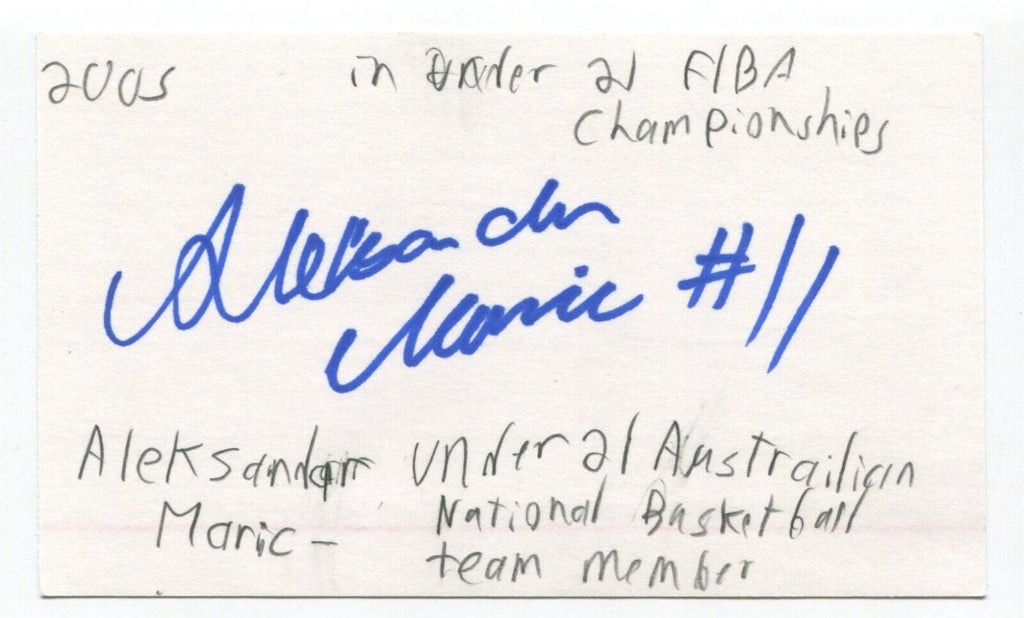 2005 in under 21 FIBA
Championships
Aleksandar
Maric #11
Aleksandar under 21 Austrailian
Maric - National Basketball
team member